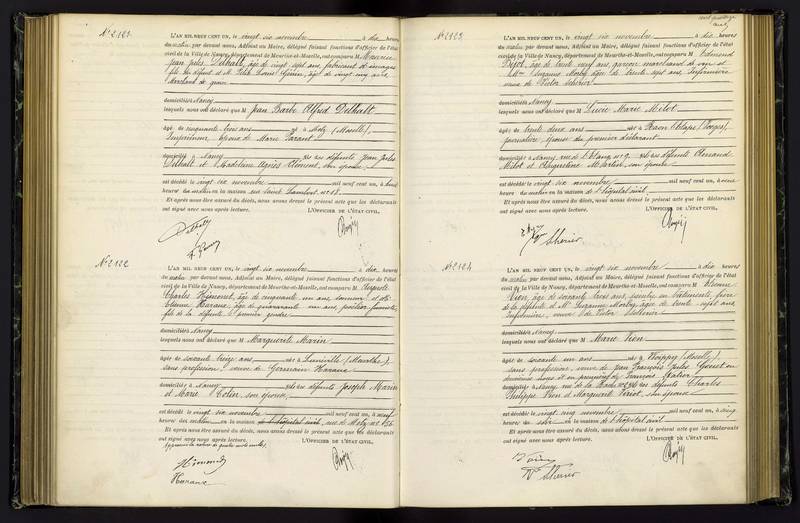 N° 2121.
L'AN MIL NEUF CENT UN, le vingt six novembre à dix heures
du matin par devant nous, Adjoint au Maire, délégué faisant fonctions d'officier de l'état
civil de la Ville de Nancy, département de Meurthe-et-Moselle, ont comparu M Maurice
Jean Jules Delhalt, âgé de vingt sept ans, fabricant d'images
fils du défunt et M. Louis âgé de vingt cinq ans
Marchand de grains
domiciliés à Nancy
lesquels nous ont déclaré que M Jean Barbe Alfred Delhalt
âgé de soixante trois ans né à Metz (Moselle),
Imprimeur, époux de Marie Parant
domicilié à Nancy fils des défunts Jean Jules
Delhalt et Madeleine Agnès Clément, son épouse
est décédé le vingt six novembre mil neuf cent un, à
heures du matin en la maison rue Saint Lambert n° 18.
Et après nous être assuré du décès, nous avons dressé le présent acte que les déclarants
ont signé avec nous après lecture. L'OFFICIER DE L'ÉTAT CIVIL,
Delhalt
N° 2122
L'AN MIL NEUF CENT UN, le vingt six novembre à dix heures
du matin par devant nous, Adjoint au Maire, délégué faisant fonctions d'officier de l'état
civil de la Ville de Nancy, département de Meurthe-et-Moselle, ont comparu M Auguste
Charles Himonet, âgé de cinquante un ans, et M.
Etienne Haraux, âgé de quarante un ans,
fils de la défunte, premier gendre
domiciliés à Nancy
lesquels nous ont déclaré que M Marguerite Marin
âgée de soixante treize ans née à Lunéville (Meurthe),
sans profession, veuve de Germain Haraux
domiciliée à Nancy fille des défunts Joseph Marin
et Marie Colin, son épouse,
est décédée le vingt six novembre mil neuf cent un, à neuf
heures du matin en la maison rue de Metz n°
Et après nous être assuré du décès, nous avons dressé le présent acte que les déclarants
ont signé avec nous après lecture. L'OFFICIER DE L'ÉTAT CIVIL,
Himonet
Haraux
N° 2123
L'AN MIL NEUF CENT UN, le vingt six novembre à dix heures
du matin par devant nous, Adjoint au Maire, délégué faisant fonctions d'officier de l'état
civil de la Ville de Nancy, département de Meurthe-et-Moselle, ont comparu M Edmond
âgé de trente neuf ans, garçon marchand de vin et
Mme Suzanne Morby âgée de trente sept ans, Infirmière
veuve de Victor Scherier
domiciliés à Nancy
lesquels nous ont déclaré que M Lucie Marie Milot
âgée de trente deux ans née à Raon l'Etape (Vosges),
journalière, épouse du premier déclarant
domiciliée à Nancy, rue de l'Etang n° 9. fille des défunts Arnaud
Milot et Augustine Martin, son épouse
est décédée le vingt six novembre mil neuf cent un, à
heures du matin en la maison de l'hôpital civil
Et après nous être assuré du décès, nous avons dressé le présent acte que les déclarants
ont signé avec nous après lecture. L'OFFICIER DE L'ÉTAT CIVIL,
Ve Sherier
N° 2124
L'AN MIL NEUF CENT UN, le vingt six novembre à dix heures
du matin par devant nous, Adjoint au Maire, délégué faisant fonctions d'officier de l'état
civil de la Ville de Nancy, département de Meurthe-et-Moselle, ont comparu M Etienne
âgé de soixante trois ans, peintre en bâtiments, frère
de la défunte et Mme Suzanne Morby, âgée de trente sept ans
Infirmière, veuve de Victor Scherier
domiciliés à Nancy
lesquels nous ont déclaré que M Marie
âgée de soixante un ans née à Woippy (Moselle),
sans profession, veuve de Jean François Jules en
deuxième noces et en premières de François
domiciliée à Nancy, rue de la fille des défunts Charles
Philippe et Marguerite son épouse
est décédée le vingt cinq novembre mil neuf cent un, à cinq
heures du soir en la maison de l'hôpital civil
Et après nous être assuré du décès, nous avons dressé le présent acte que les déclarants
ont signé avec nous après lecture. L'OFFICIER DE L'ÉTAT CIVIL,
Ve Sherier